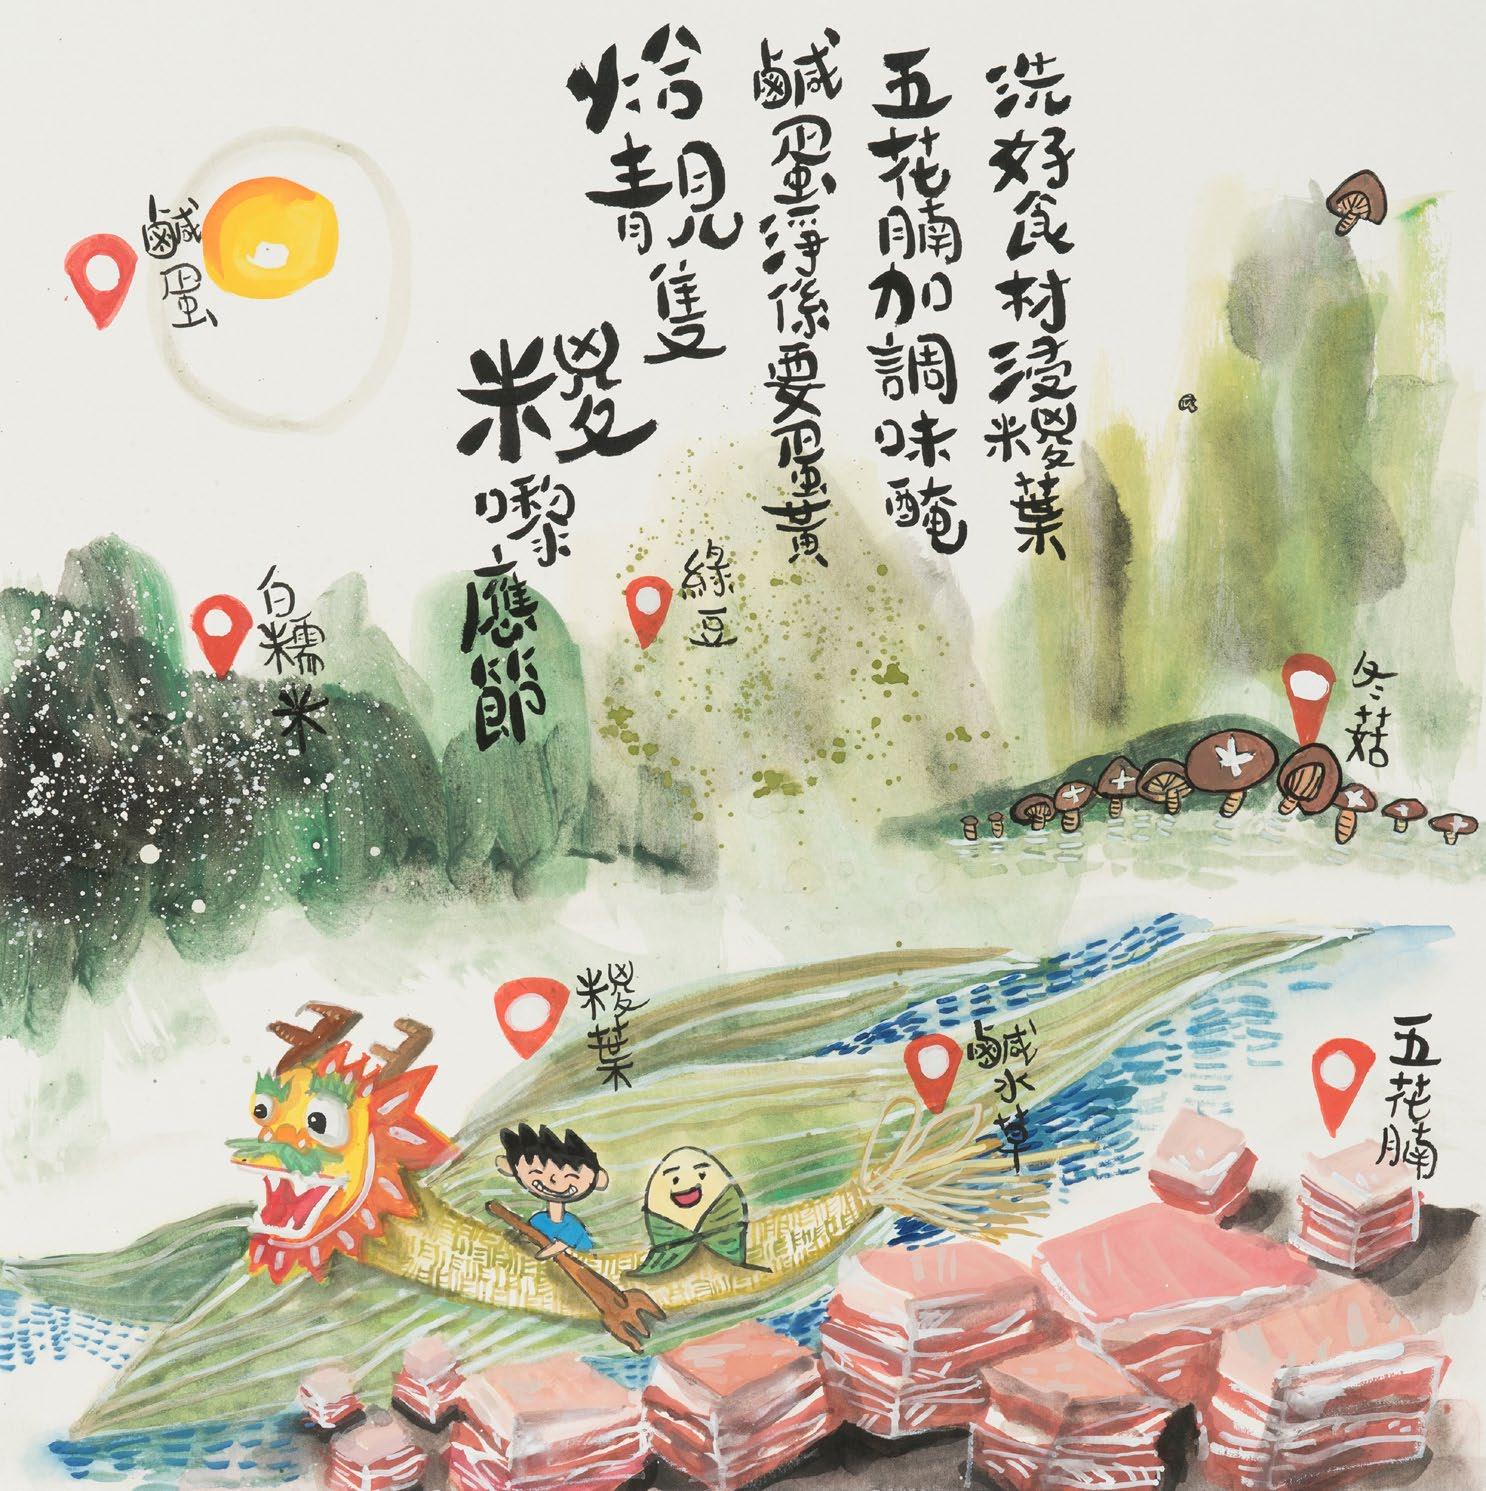 洗好食材浸糉葉
五花腩加調味醃
鹹蛋淨係要蛋黃
烚靚隻
糉嚟應節
鹹蛋
白糯米
綠豆
冬菇
糉葉
鹹水草
五花腩